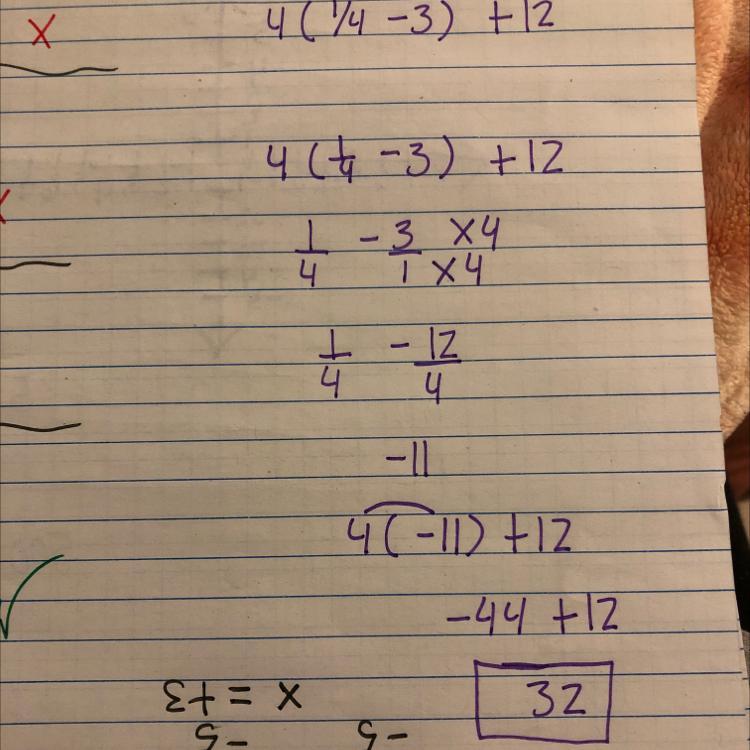 X
4(1/4 -3) +12
4(1/4 -3) +12
1/4 - 3/1 ×4 ×4
1/4 - 12/4
-11
4(-11) +12
-44 +12
32
x = +3
-5 -5